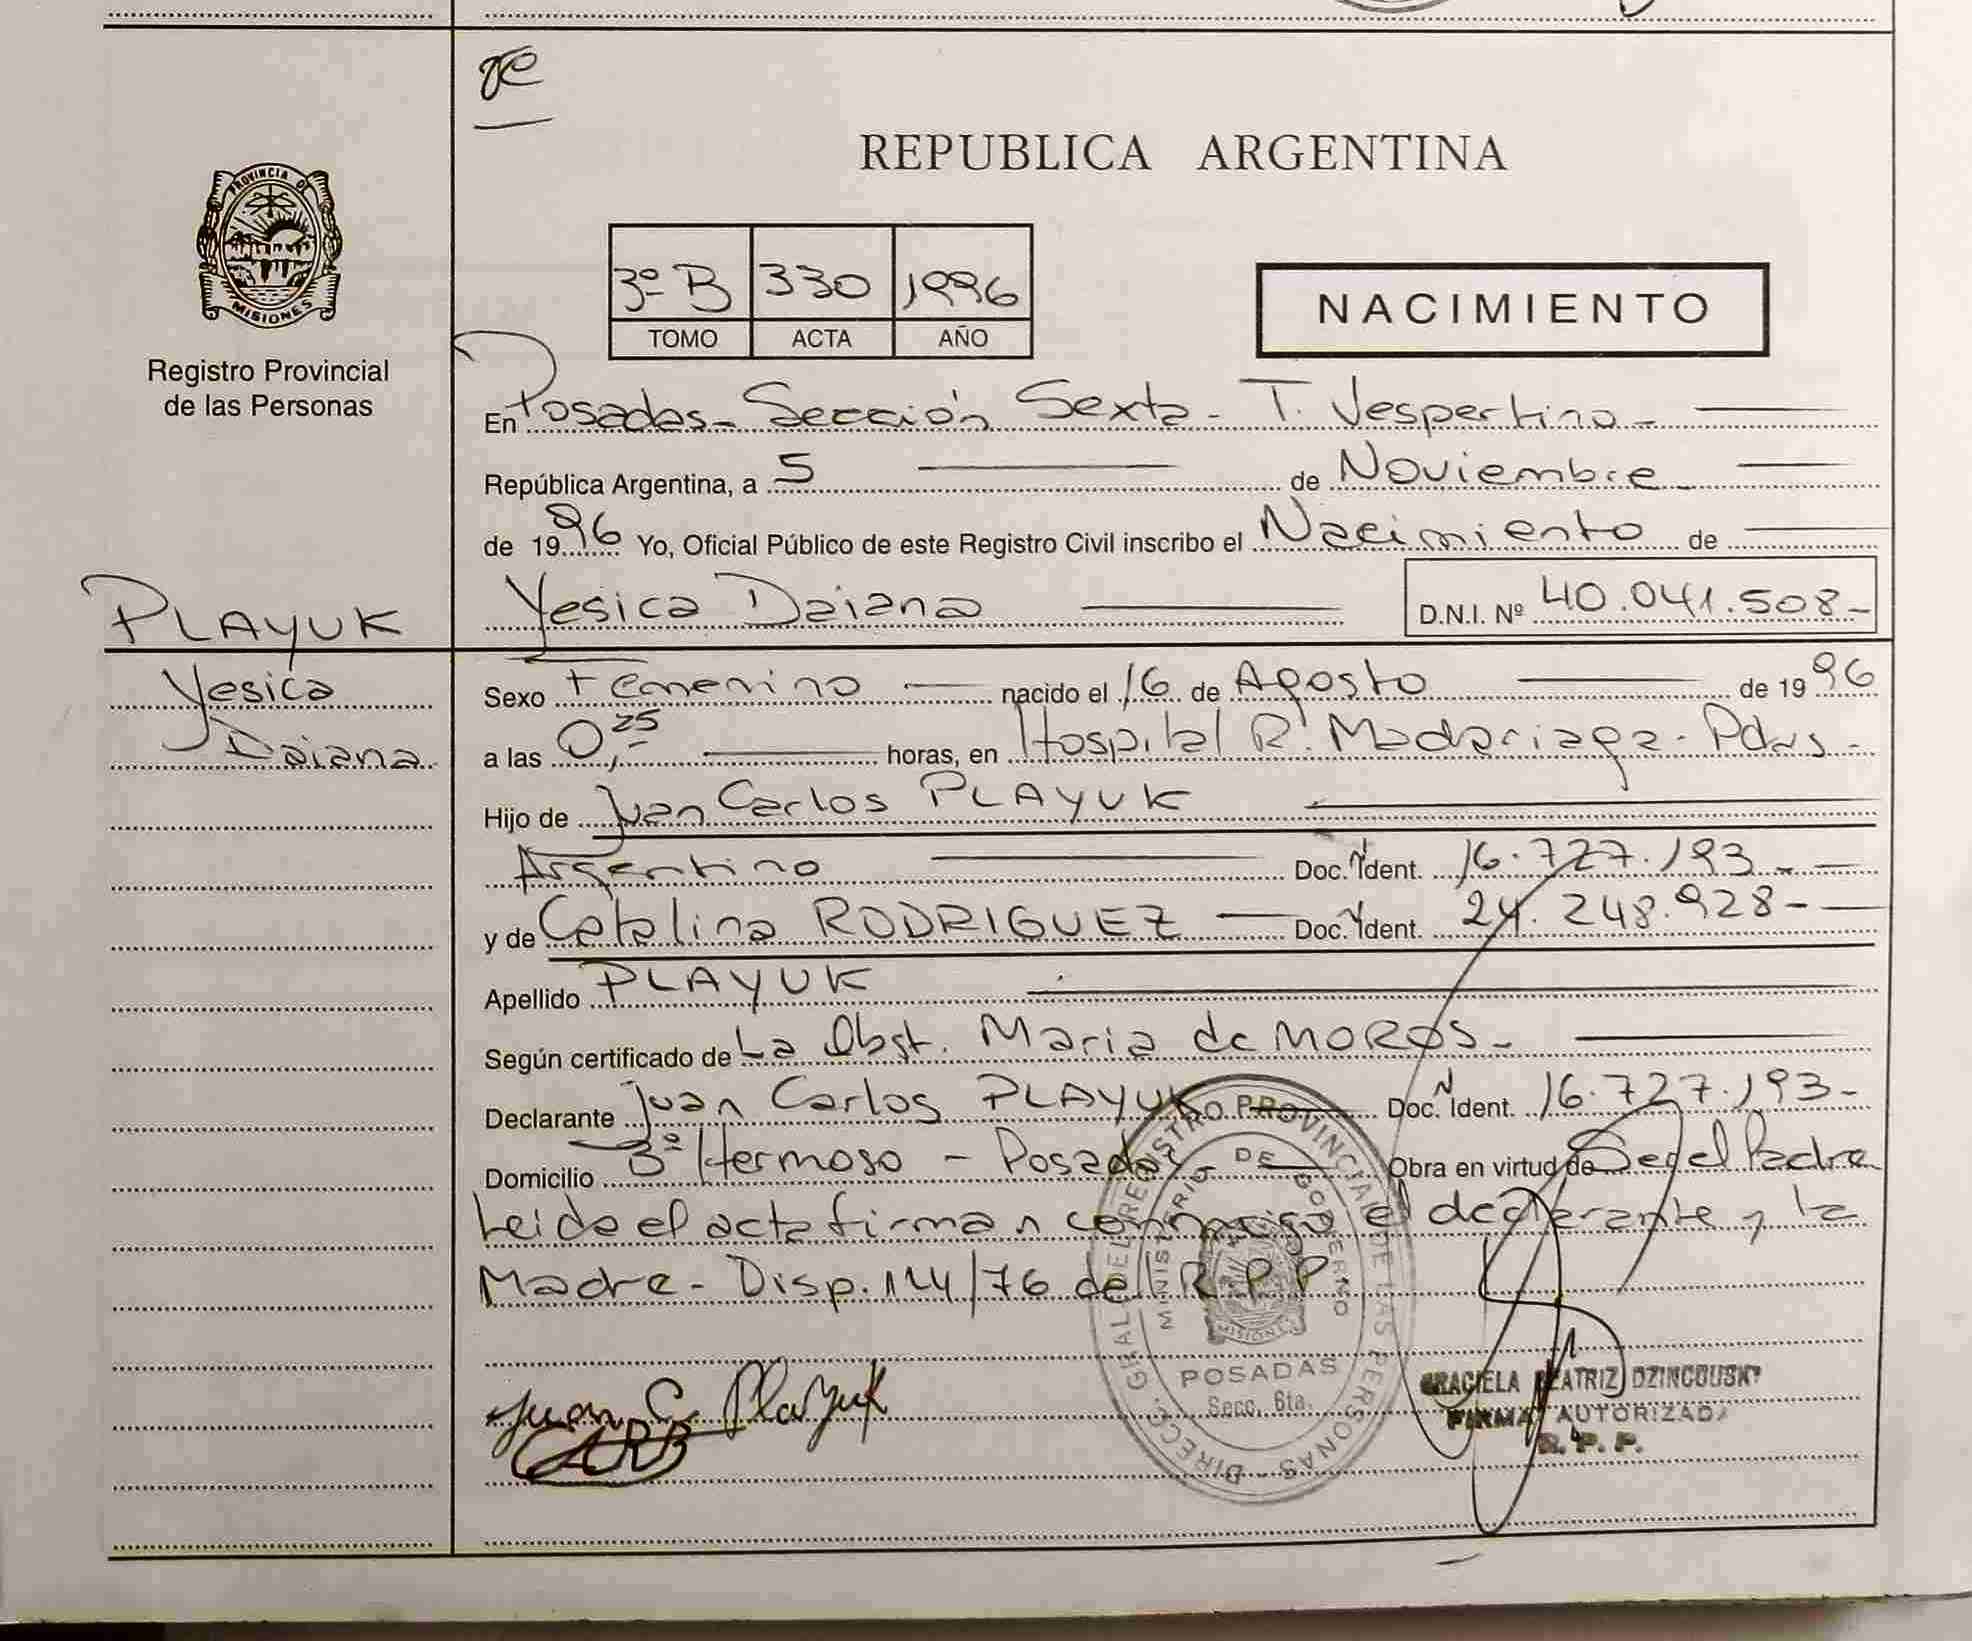 REPUBLICA ARGENTINA
PROVINCIA DE
MISIONES
Registro Provincial
de las Personas
3º B 330 1996
TOMO ACTA AÑO
NACIMIENTO
En Posadas - Sección Sexta - T. Vespertino -
República Argentina, a 5 de Noviembre
de 1996 Yo, Oficial Público de este Registro Civil inscribo el Nacimiento de
PLAYUK
Yesica Daiana
Yesica Daiana D.N.I. Nº 40.041.508-
Sexo Femenino nacido el 16 de Agosto de 1996
a las 0,25 horas, en Hospital R. Madariaga - Pdas -
Hijo de Juan Carlos PLAYUK
Argentino Doc. Ident. 16.727.193-
y de Catalina RODRIGUEZ Doc. Ident. 24.248.928-
Apellido PLAYUK
Según certificado de La Obst. Maria de MOROS -
Declarante Juan Carlos PLAYUK Doc. Ident. 16.727.193-
Domicilio Bº Hermoso - Posadas Obra en virtud de Ser el Padre
Leida el acta firman conmigo el declarante y la
Madre - Disp. 144/76 del R.P.P
Juan C. Playuk
DIRECC. GRAL DEL REGISTRO PROVINCIAL DE LAS PERSONAS
MINISTERIO DE GOBIERNO
MISIONES
POSADAS
Secc. 6ta.
GRACIELA BEATRIZ DZINCOUSKY
FIRMA AUTORIZADA
R. P. P.